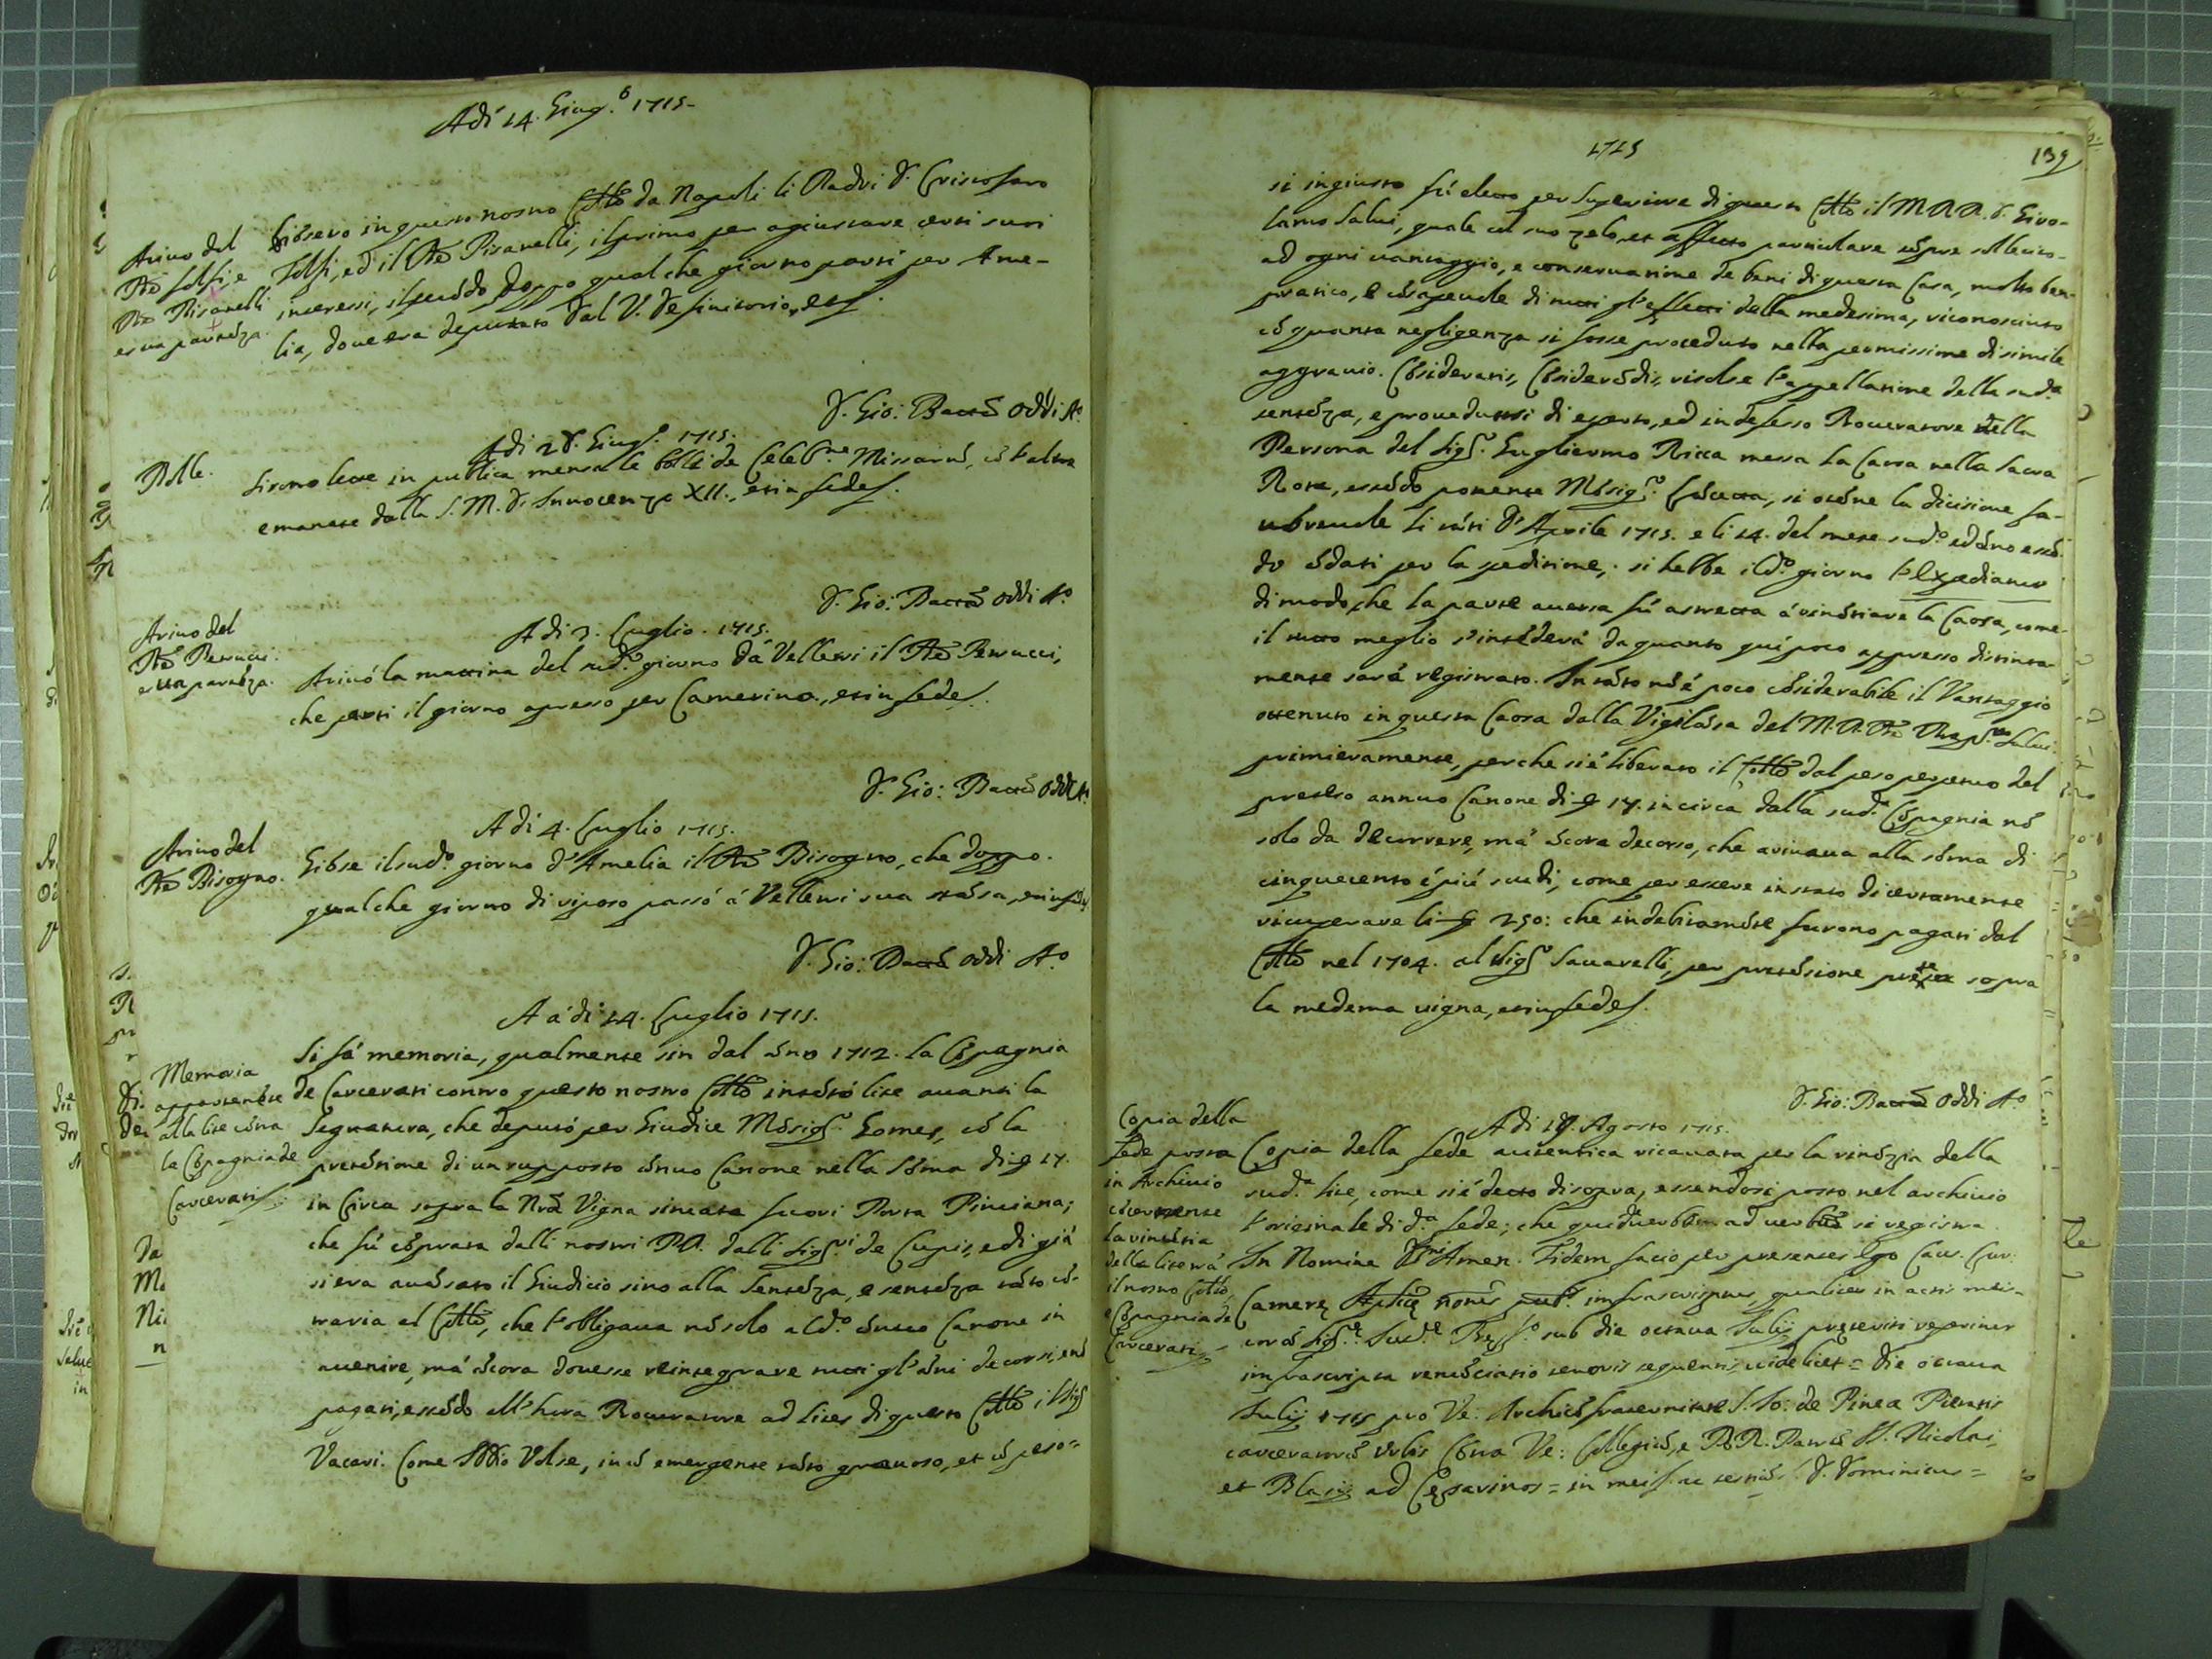 Adi 14. Giug.º 1715.
Arivo del
Pře Folfi, e
Pře Pisanelli
e sua partēza.
Giōsero in questo nostro Collº da Napoli li Padri D. Cristofaro
Folfi, ed il Pře Pisanelli, il primo per agiustare certi suoi
interessi, il secōdo doppo qualche giorno partì per Ame-
lia, dove era deputato dal V. Definitorio, et
D. Gio: Battā Oddi Aº
Adi 28. Giugº 1715.
Bolle.
Sirono lette in publica mensa le bolle de Celebne Missarū, cō l'altra
emanate dalla S. M. d'Innocenzo XII., et in fede
D. Gio: Battā Oddi Aº
Adi 3. Luglio. 1715.
Arivo del
Pře Perucci
e sua partēza.
Arivò la mattina del sudº giorno da Velletri il Pře Perucci,
che partì il giorno apresso per Camerino, et in fede
D. Gio: Battā Oddi Aº
Adi 4. Luglio 1715.
Arivo del
Pře Bisogno.
Giōse il sudº giorno d'Amelia il Pře Bisogno, che doppo
qualche giorno di riposo passò à Velletri sua stāsa, et in fede
D. Gio: Battā Oddi Aº
A à di 14. Luglio 1715.
Memoria
appartenēte
alla lite cōtra
la Cōpagnia de
Carcerati
Si fà memoria, qualmente sin dal āno 1712. la Cōpagnia
de Carcerati contro questo nostro Collº intētò lite avanti la
Segnatura, che deputò per Giudice Mōsigr Gomes, cō la
pretēsione di un supposto ānuo Canone nella sōma di 17.
in circa sopra la Nrā Vigna situata fuori Porta Pinciana;
che fù cōprata dalli nostri PP. dalli Sigri de Cupis, e di già
si era avāsato il Giudicio sino alla Sentēza, e sentēza tāto cō-
traria al Collº, che l'obligava nō solo al dº ānuo Canone in
avenire, mà ācora dovesse reintegrare tutti gl'āni decorsi, e nō
pagati, essēdo all'hora Procuratore ad lites di questo Collº il Sigr
Vacari. Come Iddio Volse, in ū emergente tāto gravoso, et ū peso=
1715
139
si ingiusto fù eletto per Superiore di questo Collº il M.R.P. D. Giro-
lamo Salvi, quale col suo zelo, et affetto particolare sēpre sollecito
ad ogni vantaggio, e conservatione de beni di questa Casa, molto ben
pratico, e cōsapevole di tutti gl'effetti della medesima, riconosciuto
cō quanta negligenza si fosse proceduto nella permissione di simile
aggravio. Cōsideratis, Cōsiderādis, risolse l'appellatione della sudª
sentēza, e provedutosi di esperto, ed indefesso Procuratore della
Persona del Sigr Guglielmo Ricca messa la Causa nella Sacra
Rota, essēdo ponente Mōsigr, si otēne la dicisione fa-
vorevole li vēti d'Aprile 1715. e li 14. del mese sudº ed āno essē-
do ādati per la speditione, si hebbe il dº giorno l'expediatur
di modo che la parte aversa fù astretta à rinōtiare la Causa, come
il tutto meglio s'intēderà da quanto quì poco appresso distinta-
mente sarà registrato. In tāto nō è poco cōsiderabile il Vantaggio
ottenuto in questa Causa dalla Vigilāsa del M.R. Pře Salvi
primieramente, perche si è liberato il Collº dal peso perpetuo del
preteso annuo Canone di 17. in circa dalla sudª Cōpagnia nō
solo da decorrere, mà ācora decorso, che arivava alla sōma di
cinquecento e più scudi, come per essere in stato di certamente
ricuperare li 250: che indebitamēte furono pagati dal
Collº nel 1704. al Sigr Savarelli, per pretēsione sopra
la medema vigna, et in fede
D. Gio: Battā Oddi Aº
Adi 19. Agosto 1715.
Copia della
fede posta
in Archivio
cōcernente
la rinōtia
della lite trà
il nostro Collº,
e Cōpagnia de
Carcerati
Copia della fede autentica ricavata per la rinōzia della
sudª lite, come si è detto di sopra, essendosi posto nel archivio
l'originale di dª fede; che quì de verbo ad verbū si registra
In Nomine Dñi Amen. Fidem facio per presentes Ego Caus. Cur.
Camerę Aplicę infrascriptus, qualiter in actis meis
corā sub die octava Julij presentis reperitur
infrascripta renūciatio tenoris sequentis, videlicet = Die octava
Julij 1715 pro Ve: Archicōfraternitate S. Io: de Pinea Pietatis
carceratorū Urbis Cōtra Ve: Collegiū, e RR. Patres SS. Nicolai,
et Blasij ad Cęsarinos = in meis D. Dominicus=